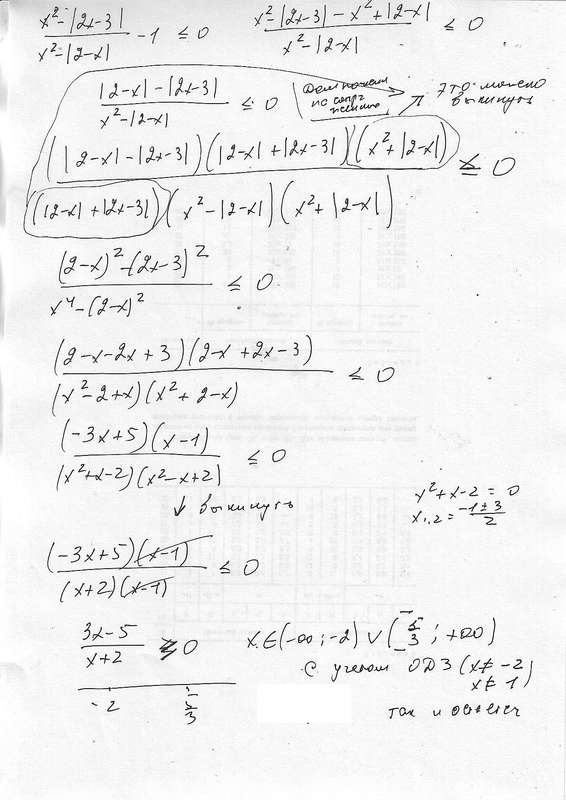 x²-|2x-3| / x²-|2-x| - 1 ≤ 0    x²-|2x-3| - x²+|2-x| / x²-|2-x| ≤ 0
|2-x| - |2x-3| / x²-|2-x| ≤ 0    Это можно выкинуть
(|2-x|-|2x-3|)(|2-x|+|2x-3|)(x²+|2-x|) / (|2-x|+|2x-3|)(x²-|2-x|)(x²+|2-x|) ≤ 0
(2-x)²-(2x-3)² / x⁴-(2-x)² ≤ 0
(2-x-2x+3)(2-x+2x-3) / (x²-2+x)(x²+2-x) ≤ 0
(-3x+5)(x-1) / (x²+x-2)(x²-x+2) ≤ 0
↓ выкинуть
x²+x-2 = 0
x₁,₂ = -1±3 / 2
(-3x+5)(x-1) / (x+2)(x-1) ≤ 0
3x-5 / x+2 ≥ 0    x ∈ (-∞; -2) ∨ [5/3; +∞)
С учетом ОДЗ (x ≠ -2
x ≠ 1)
-2    5/3
так и